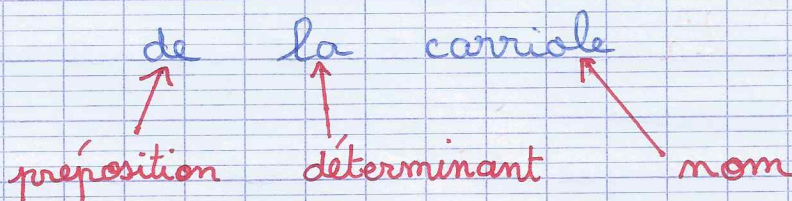 de la carriole
préposition déterminant nom